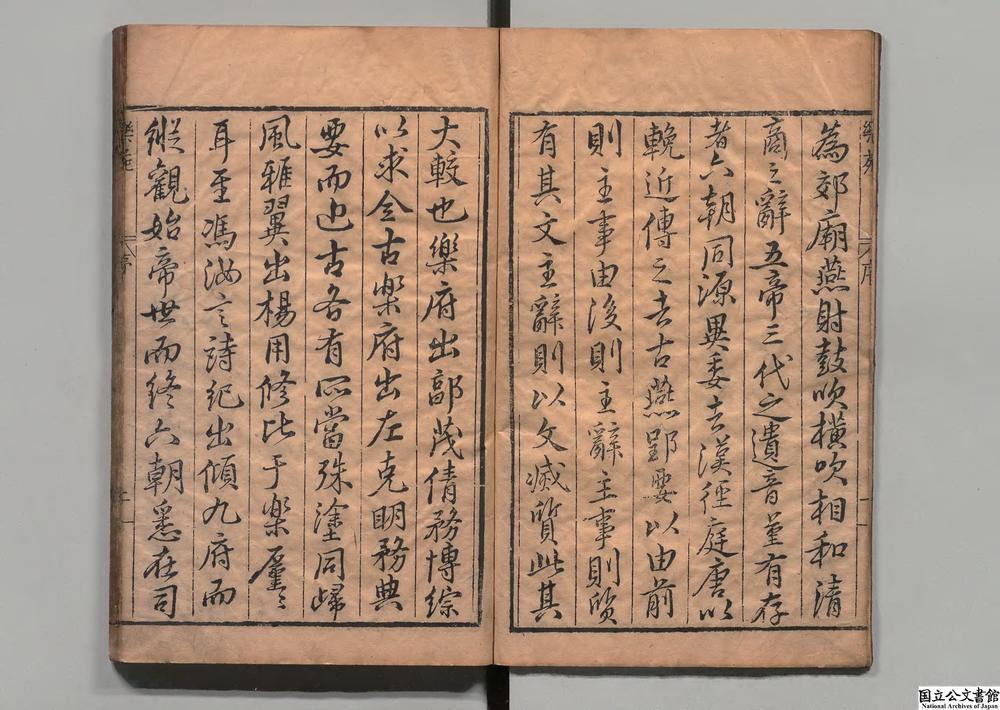 為郊廟燕射鼓吹橫吹相和清
商之辭五帝三代之遺音堇有存
者六朝同源異委去漢徑庭唐以
輓近傳之去古燕郢要以由前
則主事由後則主辭主事則質
有其文主辭則以文滅質此其
大較也樂府出郭茂倩務博綜
以求全古樂府出左克明務典
要而近古各有所當殊塗同歸
風雅翼出楊用修比于樂廑〻
耳至馮汝言詩紀出傾九府而
縱觀始帝世而終六朝悉在司
国立公文書館
National Archives of Japan